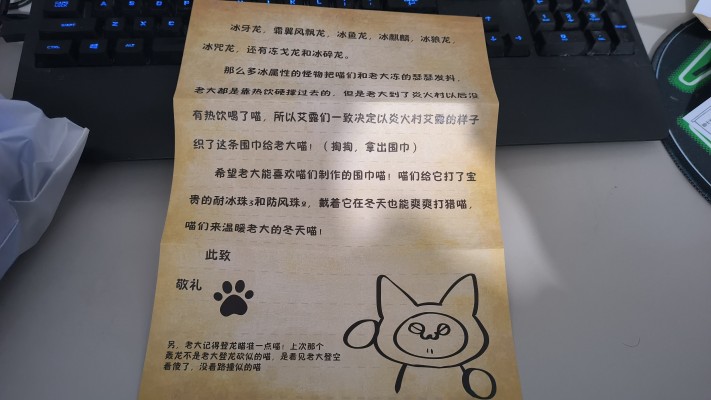 冰牙龙，霜翼风飘龙，冰鱼龙，冰麒麟，冰狼龙，
冰咒龙，还有冻戈龙和冰碎龙。
那么多冰属性的怪物把喵们和老大冻的瑟瑟发抖，
老大都是靠热饮硬撑过去的，但是老大到了炎火村以后没
有热饮喝了喵，所以艾露们一致决定以炎火村艾露的样子
织了这条围巾给老大喵！（掏掏，拿出围巾）
希望老大能喜欢喵们制作的围巾喵！喵们给它打了宝
贵的耐冰珠3和防风珠2，戴着它在冬天也能爽爽打猎喵，
喵们来温暖老大的冬天喵！
此致
敬礼
另，老大记得登龙瞄准一点喵！上次那个
轰龙不是老大登龙砍似的喵，是看见老大登空
看傻了，没看路撞似的喵